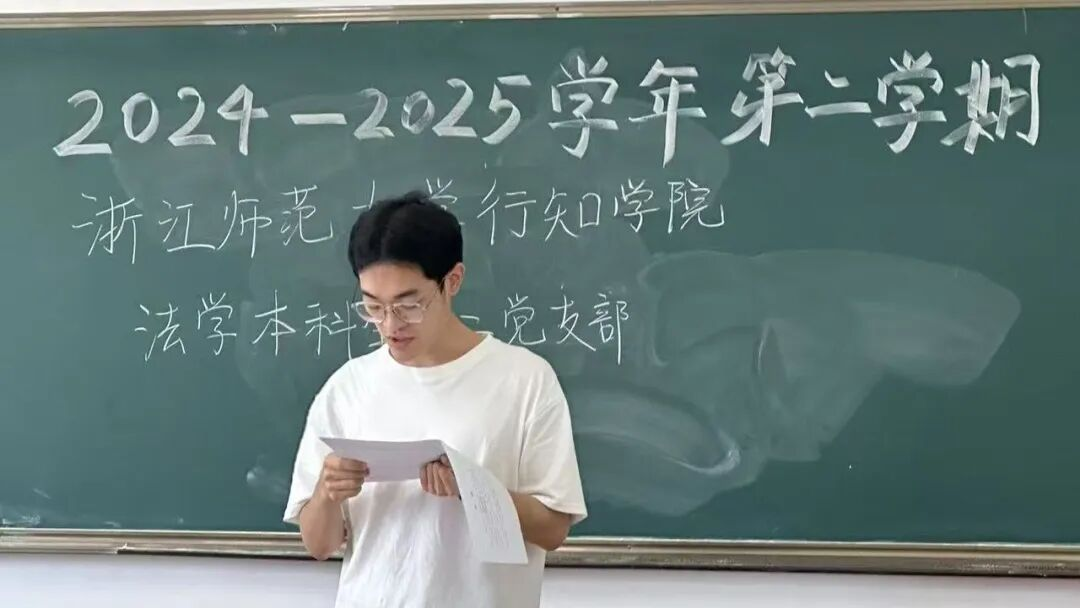 2024-2025学年第二学期
浙江师范大学行知学院
法学本科 党支部